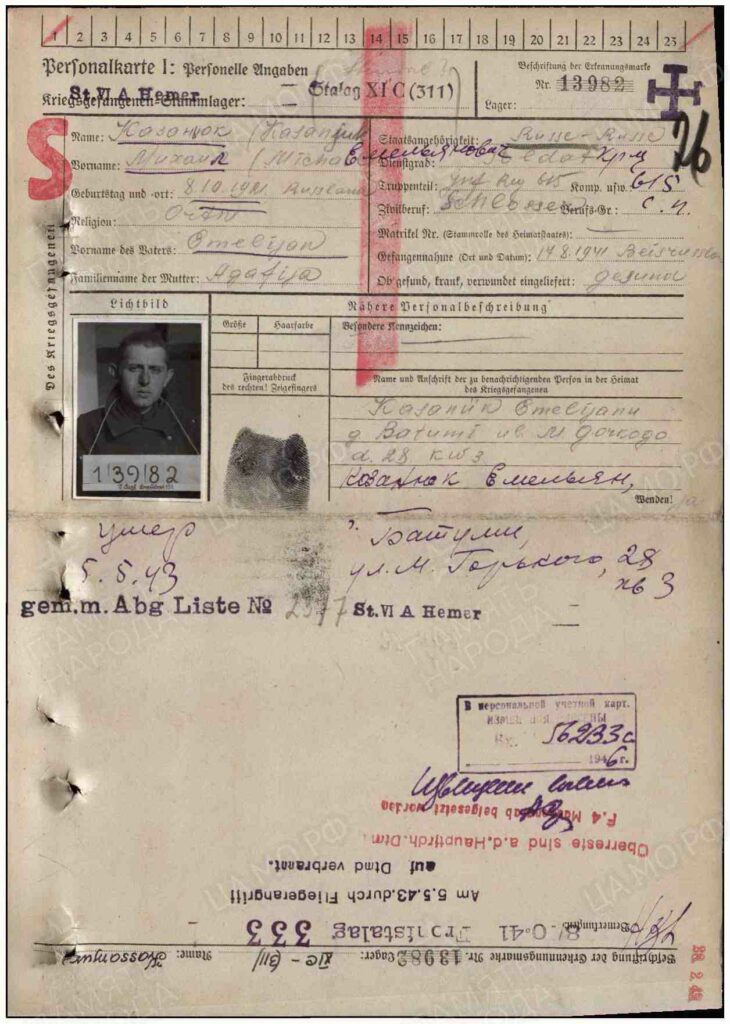 1 2 3 4 5 6 7 8 9 10 11 12 13 14 15 16 17 18 19 20 21 22 23 24 25
Personalkarte I: Personelle Angaben
Beschriftung der Erkennungsmarke
Nr. 13982
Kriegsgefangenen-Stammlager: St.VI A Hemer Stalag XI C (311)
Lager:
76
S
Des Kriegsgefangenen
Name: Казанюк (Kasanjuk
Staatsangehörigkeit: Russe-Russe
Vorname: Михаил (Michael Емельянович
Dienstgrad: Soldat Кр-ц
Geburtstag und -ort: 8.10.1921 Russland
Truppenteil: Inf Reg 615 Komp. usw. 615
Religion: Orth
Zivilberuf: Schlosser Berufs-Gr.: с.п.
Matrikel Nr. (Stammrolle des Heimatstaates):
Vorname des Vaters: Omelijan
Gefangennahme (Ort und Datum): 14.8.1941
Familienname der Mutter: Agafija
Ob gesund, krank, verwundet eingeliefert: gesund
Lichtbild
Nähere Personalbeschreibung
Größe
Haarfarbe
Besondere Kennzeichen:
Fingerabdruck
des rechten! Zeigefingers
Name und Anschrift der zu benachrichtigenden Person in der Heimat
des Kriegsgefangenen
Kasanük Omelijann
g Batumi
d. 28 kw 3
Козанюк Емельян,
1 39 82
Wenden!
умер
г. Батуми,
5.5.43
ул. М. Горького, 28
кв 3
gem.m. Abg Liste № St. VI A Hemer
В персональной учетной карт.
Вх. 56233с
1946 г.
F.4 Massengrab beigesetzt worden
Überreste sind a.d. Hauptfrdh. Dtm
auf Dtmd verbrannt.
Am 5.5.43. durch Fliegerangriff
Bemerkungen: 8.10.41 Fronistalag 333
Beschriftung der Erkennungsmarke Nr. 13982 Lager: XIC-(311) Name: